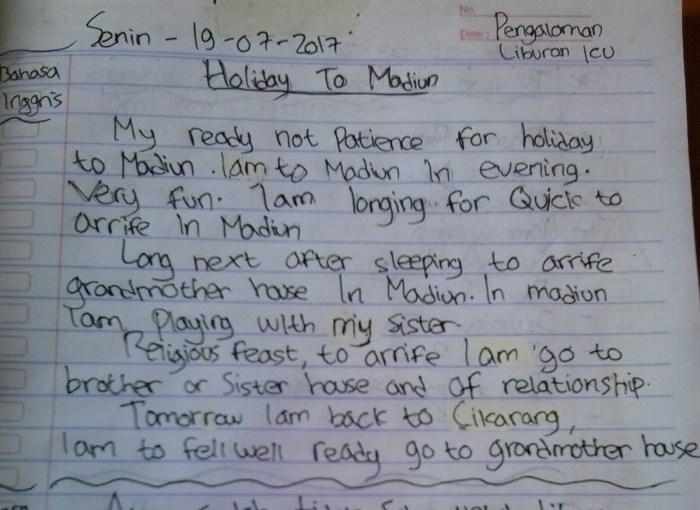 No.
Date:
Senin - 19-07-2017
Pengalaman
Liburan Icu
Bahasa
Inggris
Holiday To Madiun
My ready not Patience for holiday
to Madiun. Iam to Madiun In evening.
Very fun. Iam longing for Quick to
arrife In Madiun
Long next after sleeping to arrife
grandmother house In Madiun. In madiun
Iam Playing with my sister.
Religious feast, to arrife I am go to
brother or Sister house and of relationship.
Tomorrow Iam back to Cikarang,
Iam to fell well ready go to grandmother house